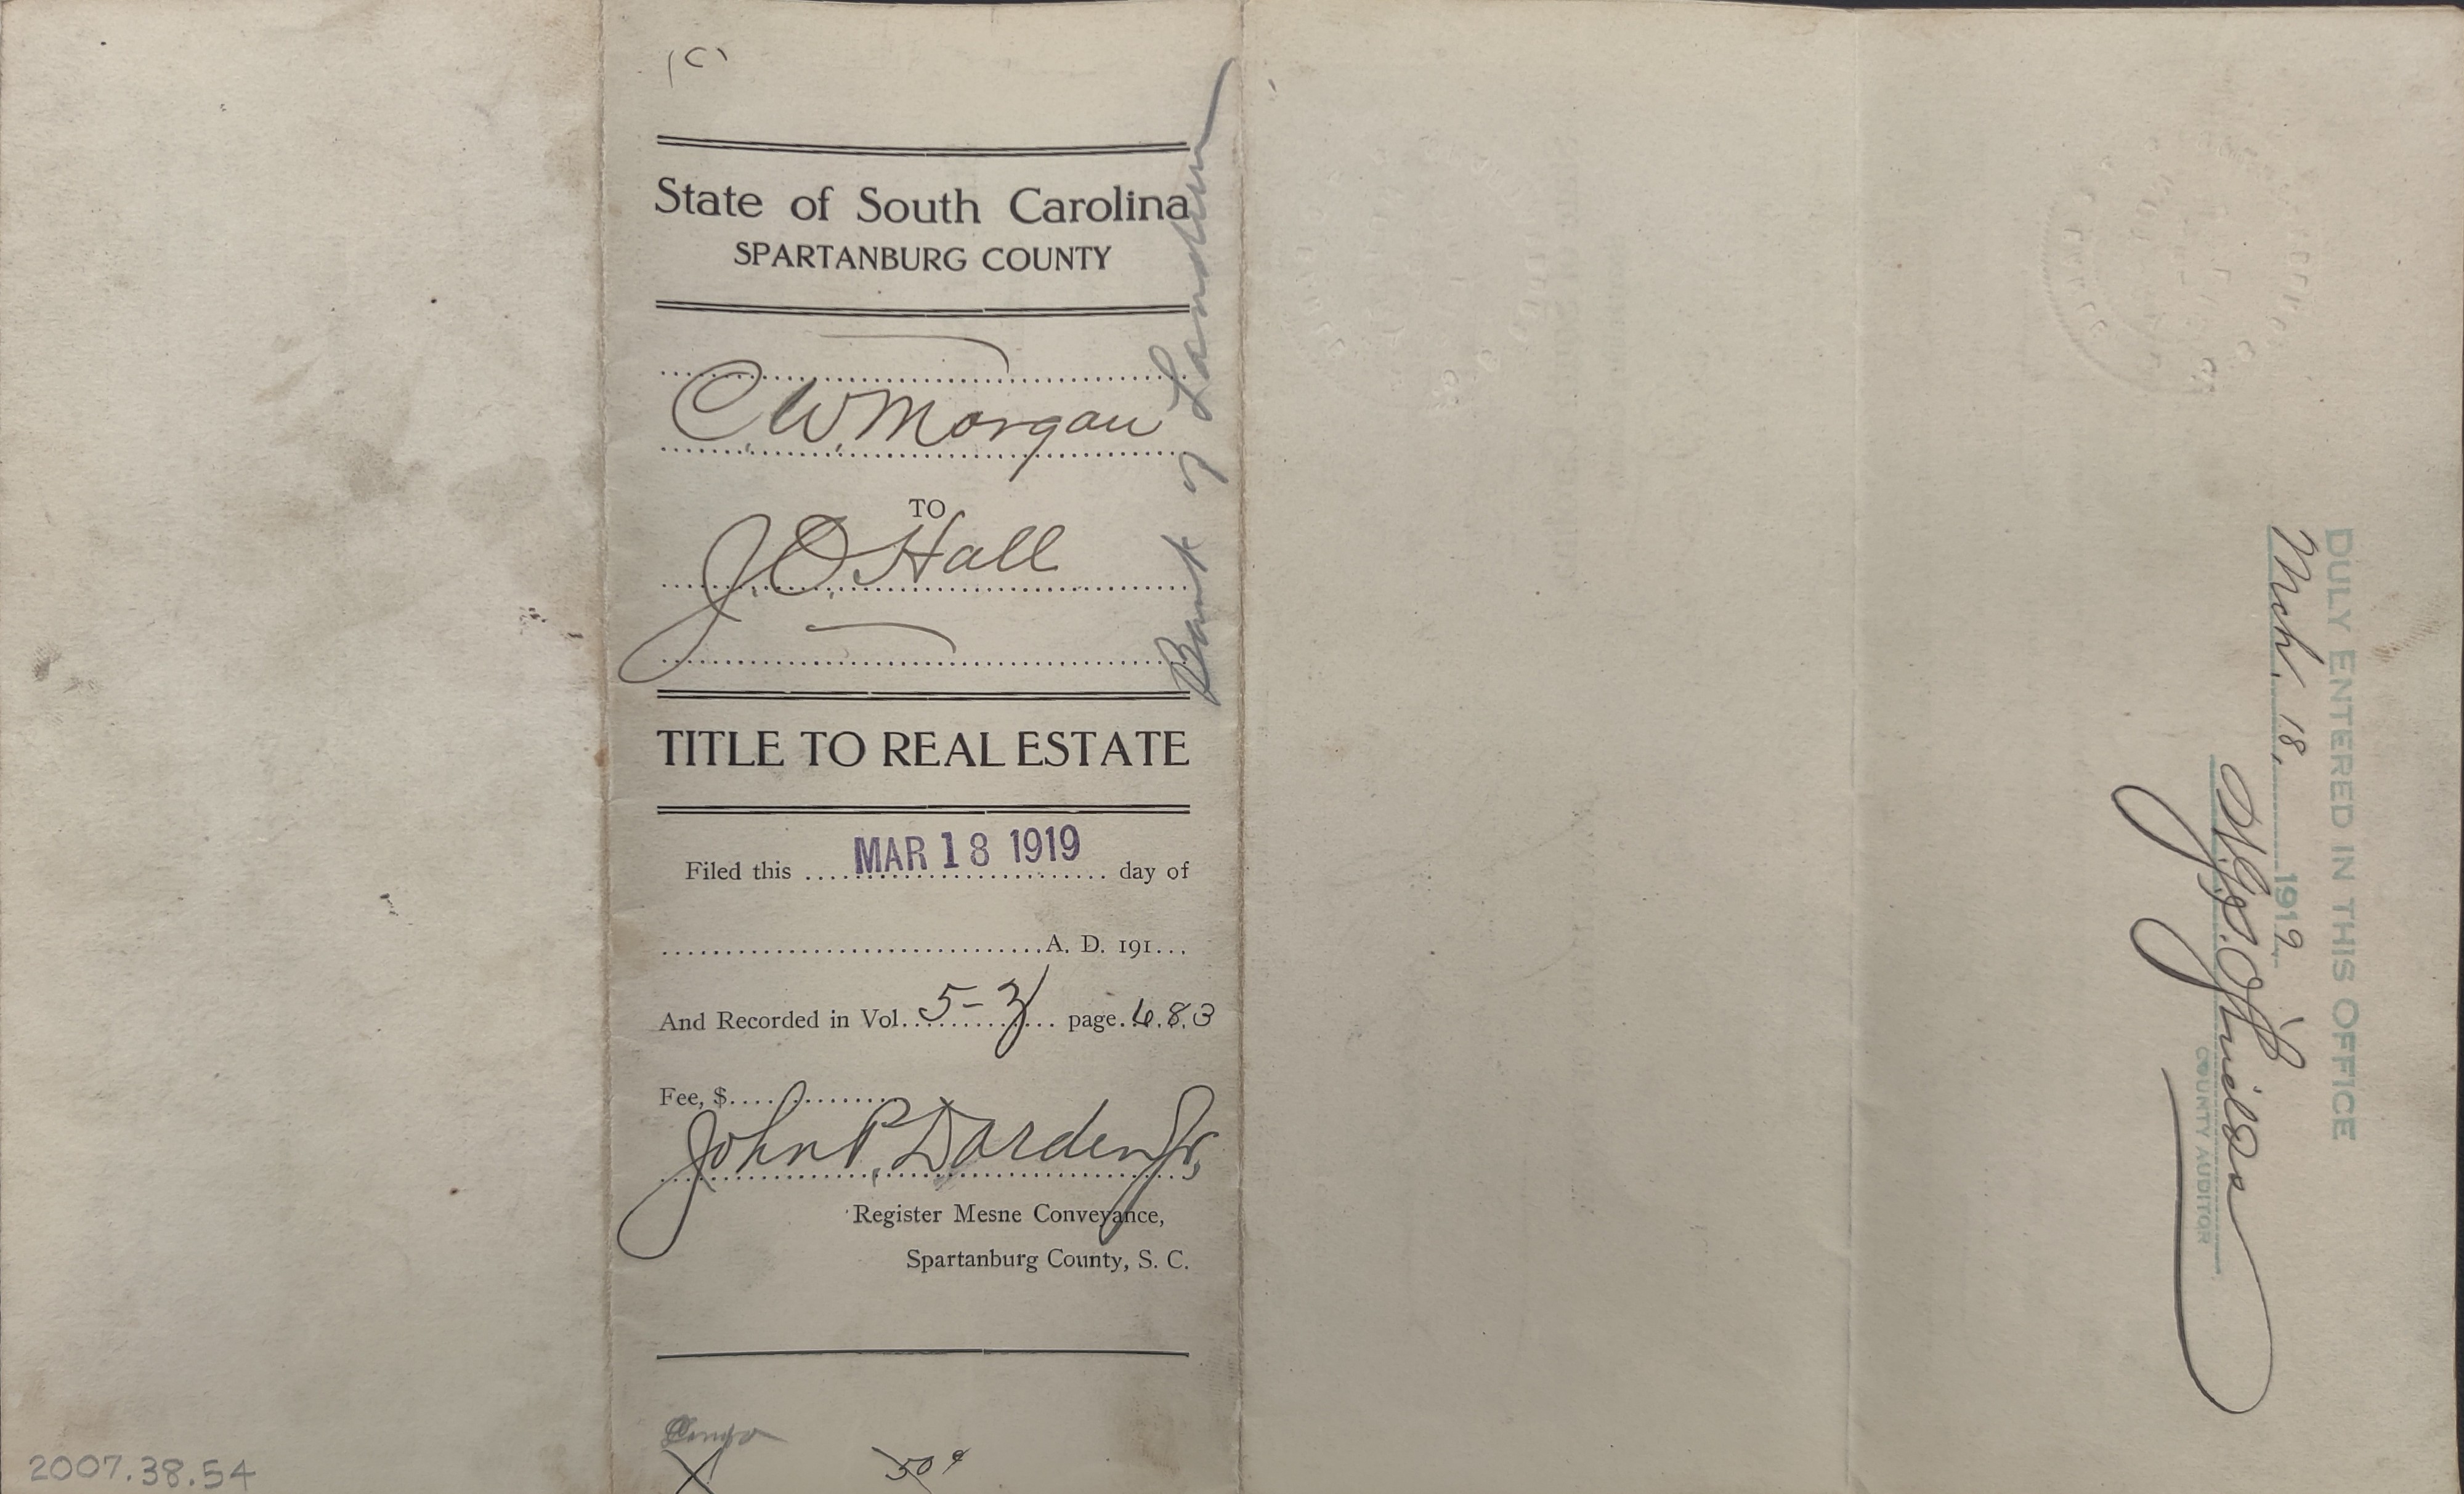 State of South Carolina
SPARTANBURG COUNTY
C. W. Morgan
TO
J. O. Hall
Bank of Landrum
TITLE TO REAL ESTATE
Filed this MAR 18 1919 day of
A. D. 191
And Recorded in Vol. 5-Z page 683
Fee, $
John P. Darden Jr,
Register Mesne Conveyance,
Spartanburg County, S. C.
50¢
2007.38.54
DULY ENTERED IN THIS OFFICE
Mch. 18, 1919
COUNTY AUDITOR